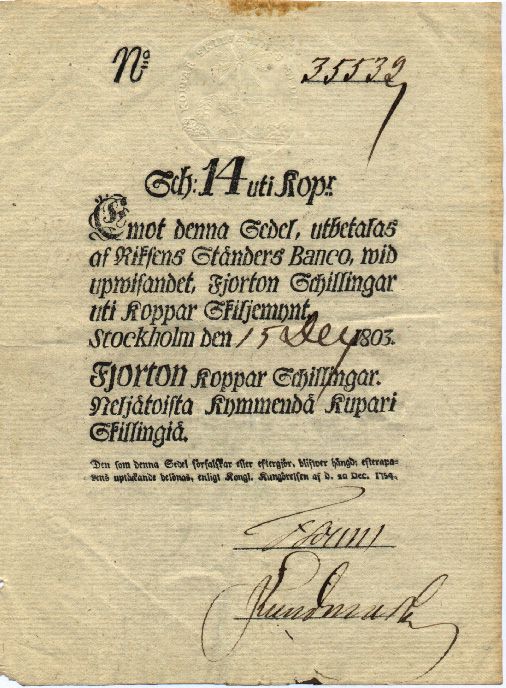 Nº 35532
Sch: 14 uti Kop:r
Emot denna Sedel, utbetalas
af Riksens Ständers Banco, wid
upwisandet, Fjorton Schillingar
uti Koppar Skiljemynt.
Stockholm den 15 Dec 1803.
Fjorton Koppar Schillingar.
Neljätoista Kymmendä Kupari
Skillingiä.
Den som denna Sedel förfalskar eller eftergiör, blifwer hängd; efterapa-
rens uptäckande belönas, enligt Kongl. Kungörelsen af d. 20 Dec. 1754.